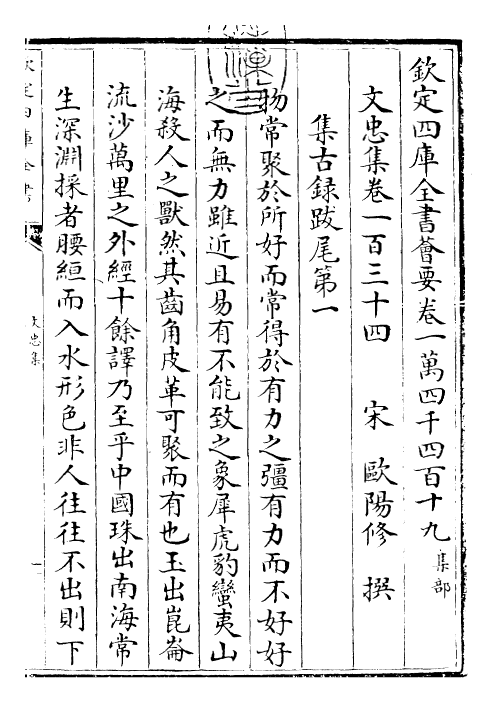 欽定四庫全書薈要卷一萬四千四百十九 集部
文忠集卷一百三十四 宋 歐陽修 撰
集古録跋尾第一
物常聚於所好而常得於有力之彊有力而不好好
之而無力雖近且易有不能致之象犀虎豹蠻夷山
海殺人之獸然其齒角皮革可聚而有也玉出崑崙
流沙萬里之外經十餘譯乃至乎中國珠出南海常
生深淵採者腰絙而入水形色非人往往不出則下
欽定四庫全書
文忠集
一